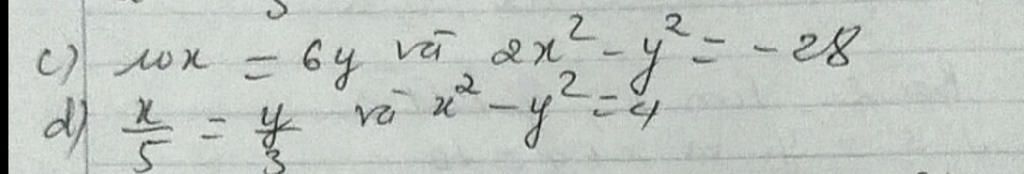 c) 10x = 6y và 2x² - y² = - 28
d) x/5 = y/3 và x² - y² = 4